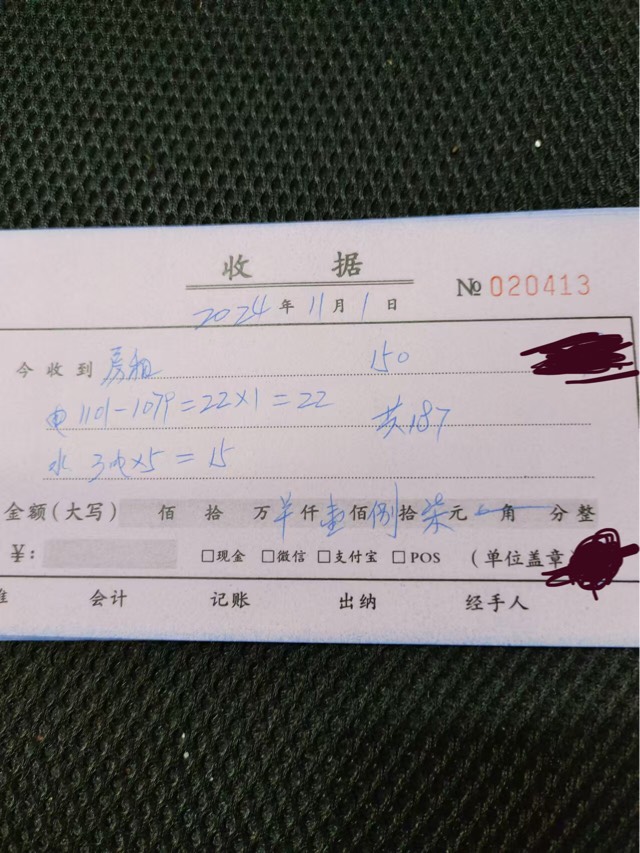 收 据
№ 020413
2024 年 11 月 1 日
今收到 房租 150
电 1101-1079=22×1=22 共187
水 3吨×5=15
金额(大写) 佰 拾 万 仟 壹 佰 捌 拾 柒 元 角 分 整
¥: □现金 □微信 □支付宝 □POS (单位盖章)
会计 记账 出纳 经手人